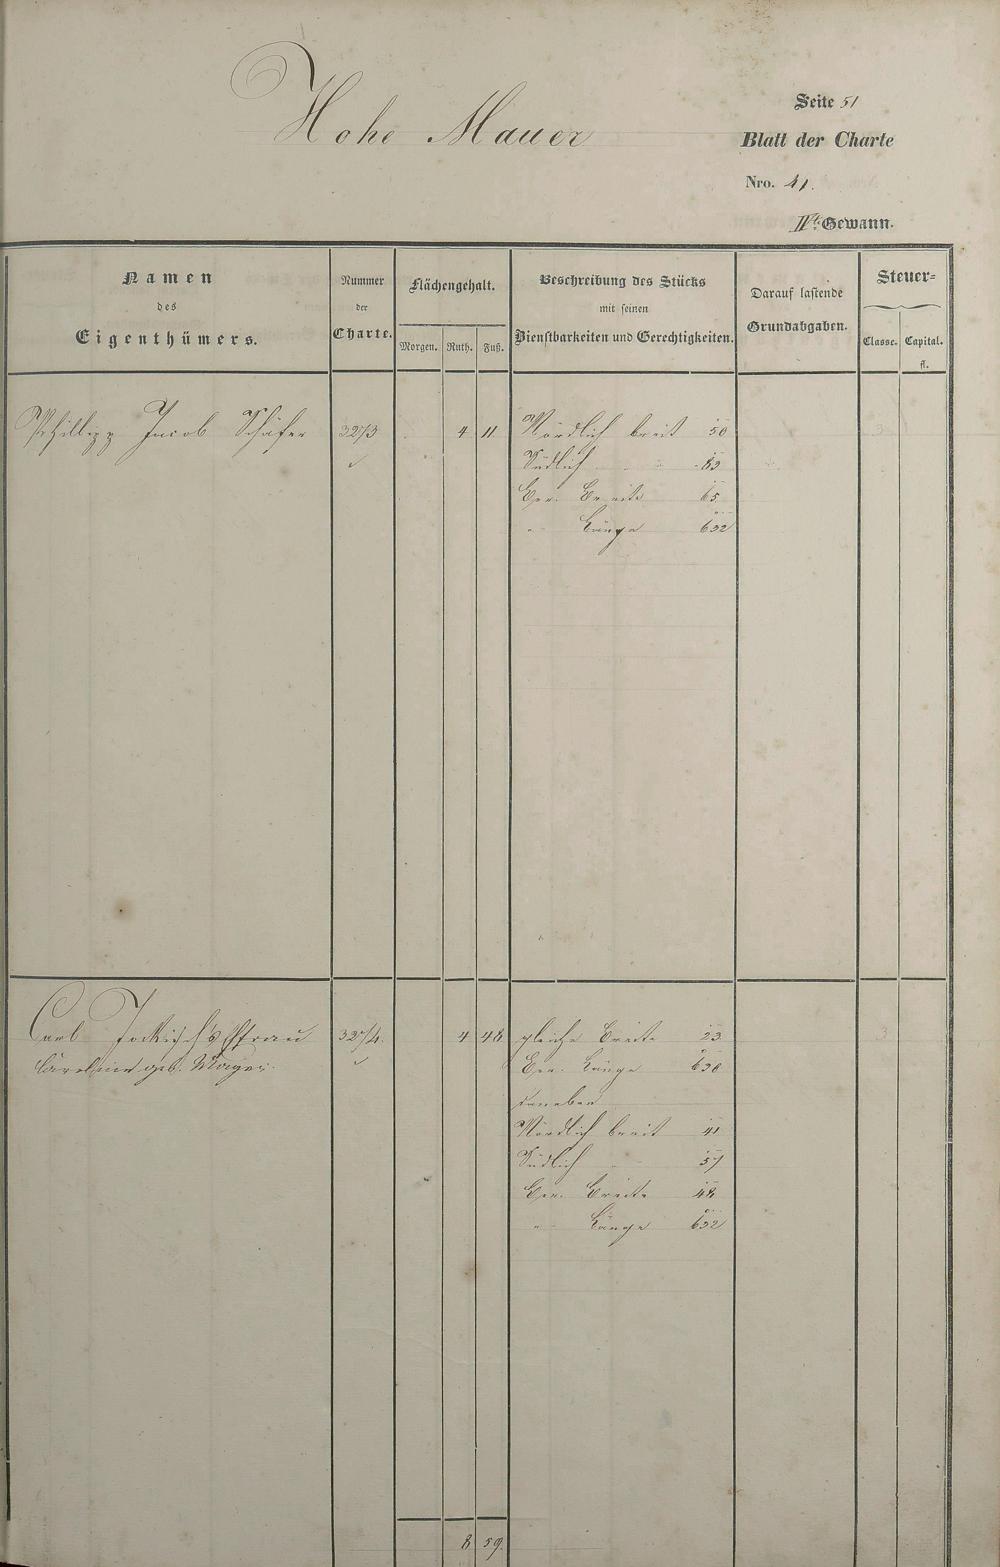 Hohe Mauer
Seite 51
Blatt der Charte
Nro. 41.
IVte Gewann.
Namen
des
Eigenthümers.
Nummer
der
Charte.
Flächengehalt.
Morgen. Ruth. Fuß.
Beschreibung des Stücks
mit seinen
Dienstbarkeiten und Gerechtigkeiten.
Darauf lastende
Grundabgaben.
Steuer-
Classe. Capital.
fl.
Phillipp Jacob Schäfer 3273 4 11 Nördlich breit 50 3
Südlich " "
Ger. Breite 65
" Länge 632
Carl Ehfrau 3274. 4 48 gleiche Breite 23 3
Caroline geb. Mayer. Ger. Länge 630
daneben
Nördlich breit 41
Südlich 57
Ger. Breite 48
" Länge 632
8 59.